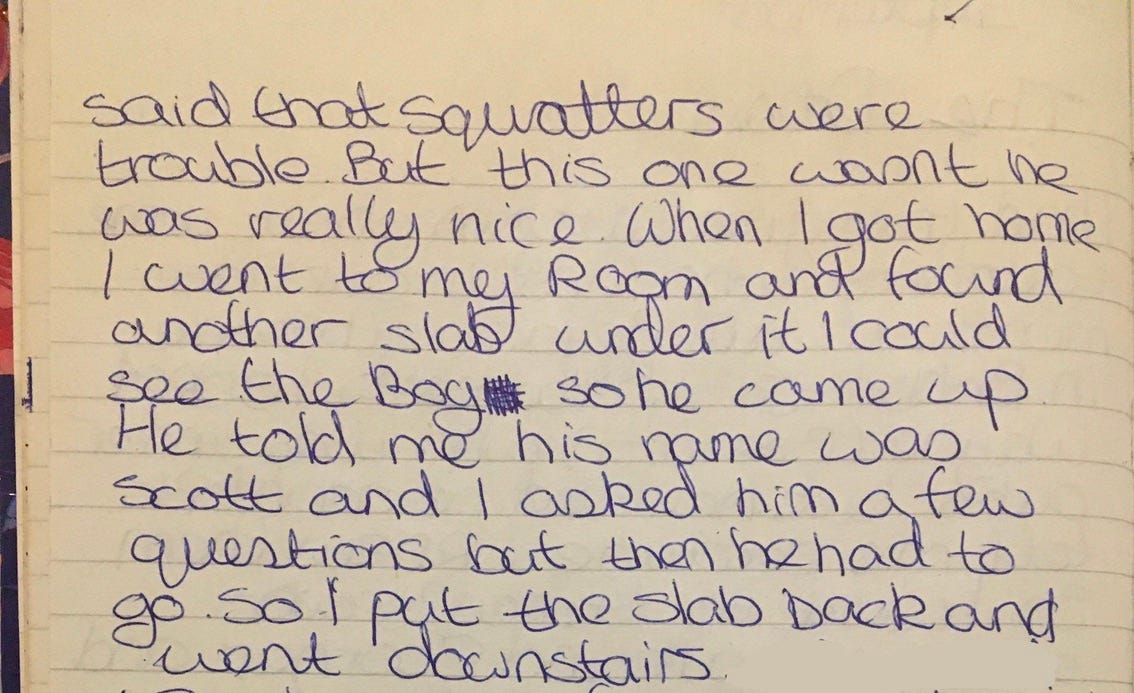 said that squatters were
trouble. But this one wasnt he
was really nice. When I got home
I went to my Room and found
another slab under it I could
see the Boy so he came up.
He told me his name was
Scott and I asked him a few
questions but then he had to
go. So I put the slab back and
went downstairs.